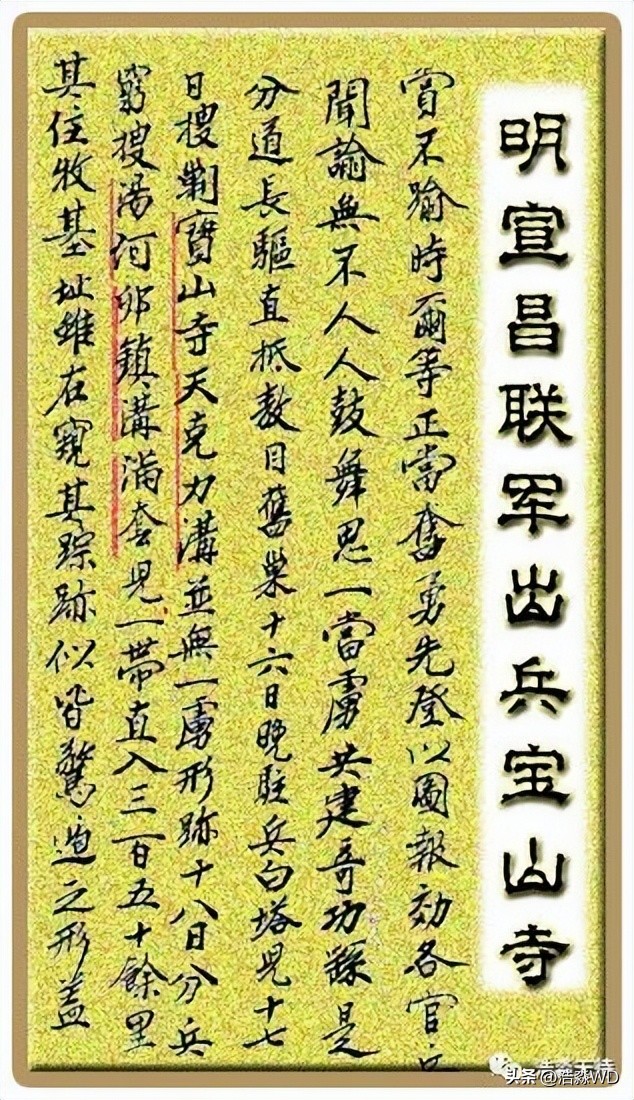 明宣昌联军出兵宝山寺
賞不踰時爾等正當奮勇先登以圖報効各官兵
聞諭無不人人鼓舞思一當虜共建奇功繇是
分道長驅直抵敖目舊巢十六日晚駐兵白塔兒十七
日搜剿寶山寺天克力溝並無一虜形跡十八日分兵
窮搜湯河卯鎮溝滿套兒一帶直入三百五十餘里
其住牧基址雖在窺其踪跡似皆驚遁之形蓋
头条@浩淼WD